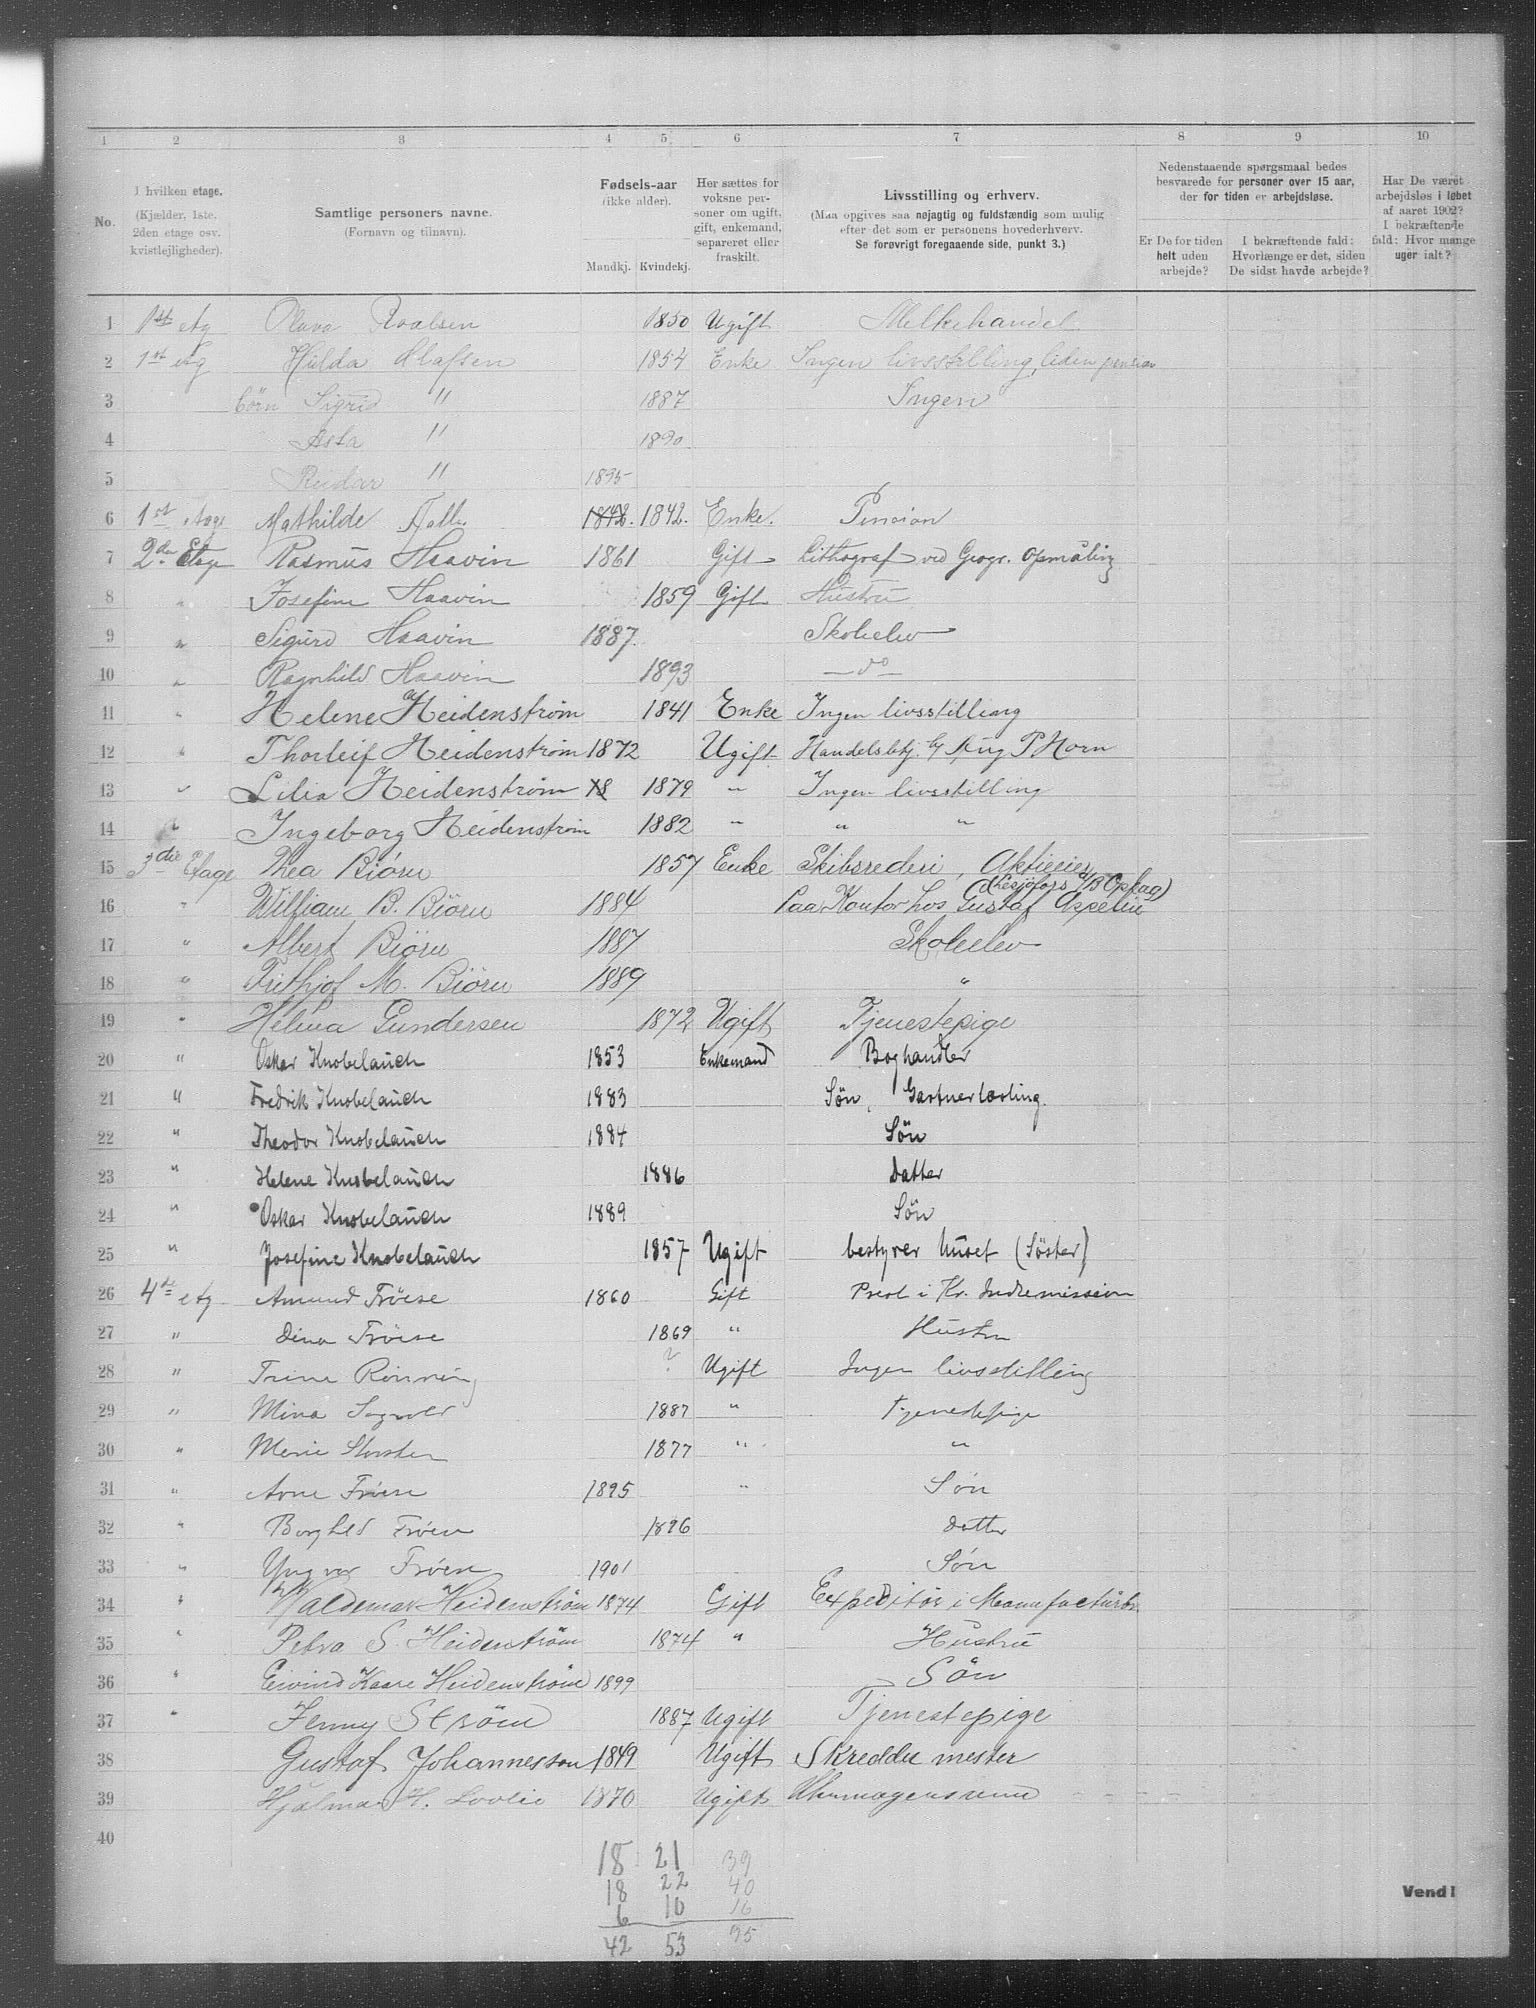 1 2 3 4 5 6 7 8 9 10
No.
I hvilken etage. (Kjælder, 1ste, 2den etage osv. kvistlejligheder).
Samtlige personers navne. (Fornavn og tilnavn).
Fødsels-aar (ikke alder). Mandkj. Kvindekj.
Her sættes for voksne personer om ugift, gift, enkemand, separeret eller fraskilt.
Livsstilling og erhverv. (Maa opgives saa nøjagtig og fuldstændig som mulig efter det som er personens hovederhverv. Se forøvrigt foregaaende side, punkt 3.)
Nedenstaaende spørgsmaal bedes besvarede for personer over 15 aar, der for tiden er arbejdsløse.
Er De for tiden helt uden arbejde?
I bekræftende fald: Hvorlænge er det, siden De sidst havde arbejde?
Har De været arbejdsløs i løbet af aaret 1902? I bekræftende fald: Hvor mange uger ialt?
1 1st etg Olava Roalsen 1850 Ugift Melkehandel
2 1st etg Hulda Olafsen 1854 Enke Ingen livsstilling, liden pension
3 börn Sigrid " 1887 Ingen
4 Asta " 1890
5 Reidar " 1895
6 1st etage Mathilde 1842. 1842. Enke. Pension
7 2den Etage Rasmus Haavin 1861 Gift Lithograf ved Geogr. Opmåling
8 " Josefine Haavin 1859 Gift Hustru
9 " Sigurd Haavin 1887. Skoleelev
10 " Ragnhild Haavin 1893 — do —
11 " Helene Heidenstrøm 1841 Enke Ingen livsstilling
12 " Thorleif Heidenstrøm 1872 Ugift Handelsbtj. Aug P Horn
13 " Lilia Heidenstrøm 18 1879 " Ingen livsstilling
14 " Ingeborg Heidenstrøm 1882 " " "
15 3die Etage Thea Biörn 1857 Enke Skibsrederi, Aktieeier
16 " William B. Biörn 1884 Paa Kontor hos Gustaf Aspelin
17 " Albert Biörn 1887 Skoleelev
18 " Frithjof M. Biörn 1889 "
19 " Helma Gundersen 1872 Ugift Tjenestepige
20 " Oskar Knobelauch 1853 Enkemand Boghandler
21 " Fredrik Knobelauch 1883 Søn, Gartnerlærling.
22 " Theodor Knobelauch 1884 Søn
23 " Helene Knobelauch 1886 Datter
24 " Oskar Knobelauch 1889 Søn
25 " Josefine Knobelauch 1857 Ugift bestyrer huset (Söster)
26 4de etg Amund Tröese 1860 Gift Prest i Kr. Indremission
27 " Dina Tröese 1869 " Hustru
28 " Trine Rönning ? Ugift Ingen livsstilling
29 " Mina 1887 " Tjenestepige
30 " 1877 " "
31 " Arne Fröen 1895 " Søn
32 " Borghild Fröen 1896 datter
33 " Yngvar Fröen 1901 Søn
34 " Waldemar Heidenstrøm 1874 Gift Expeditør i Manufacturfr.
35 " Petra S. Heidenstrøm 1874 " Hustru
36 " Eivind Kaare Heidenstrøm 1899 Søn
37 " Jenny Strøm 1887 Ugift Tjenestepige
38 Gustaf Johannesson 1849 Ugift Skreddermester
39 Hjalmar H. Lovlie 1870 Ugift Uhrmagersvend
40
18 21 39
18 22 40
6 10 16
42 53 95
Vend!